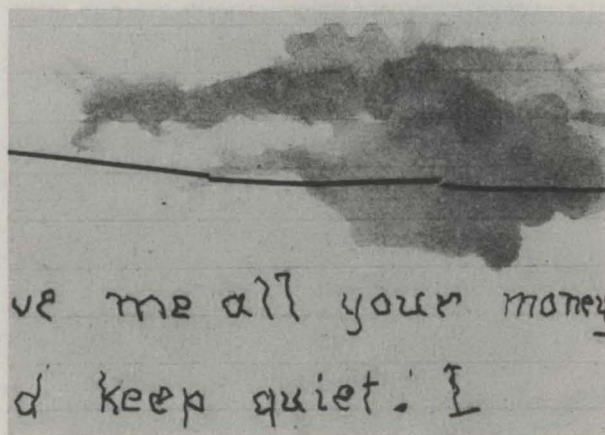 ve me all your money
d keep quiet. I